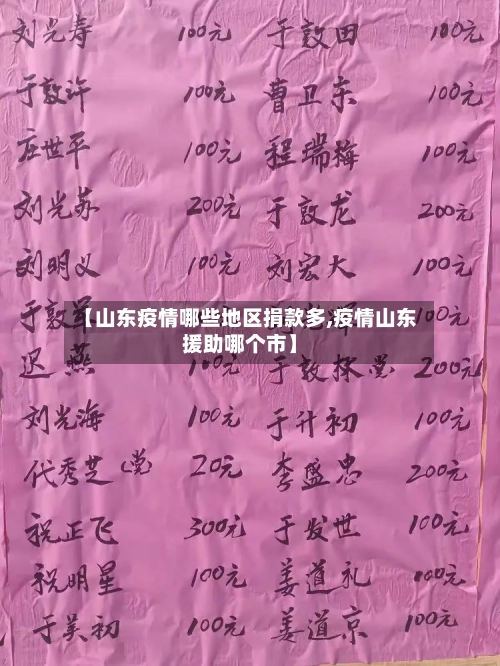 刘光寿 100元 于敦田 100元
于敦许 100元 曹卫东 100元
庄世平 100元 程瑞梅 100元
刘光苏 200元 于敦龙 200元
刘明义 100元 刘宏大 100元
于敦军
【山东疫情哪些地区捐款多,疫情山东
援助哪个市】
迟燕 100元 于敦禄(党) 200元
刘光海 100元 于升初 100元
代秀芝(党) 20元 李盛忠 200元
祝正飞 300元 于发世 100元
祝明星 100元 姜道礼 100元
于美初 100元 姜道京 100元